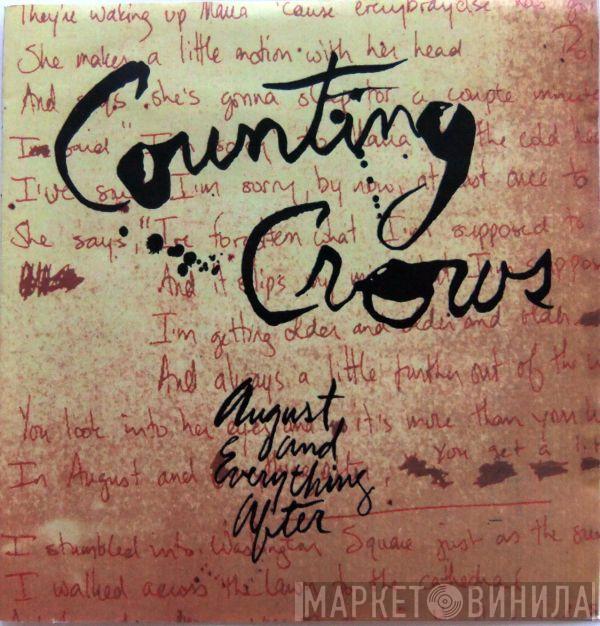 They're waking up Maria 'cause everybody else has
She makes a little motion with her head
And says she's gonna sleep for a couple minutes
Counting
I'm sorry the cold
I've said I'm sorry by now, at least once to
She says, "I've forgotten what I'm supposed to
Crows
And it slips my
I'm getting older and older and older
And always a little further out of the
August
and
Everything
After
You look into her eyes and it's more than your
You get a
In August and
I stumbled into Washington Square just as the
I walked across the lawn to the cathedral
МАРКЕТ ВИНИЛА